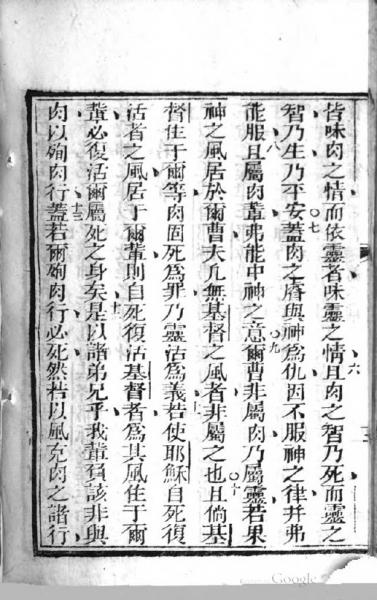 皆味肉之情而依靈者味靈之情六且肉之智乃死而靈之
智乃生乃平安七蓋肉之睿與神為仇因不服神之律并弗
能服八且屬肉輩弗能中神之意九爾曹非屬肉乃屬靈若果
神之風居於爾曹夫凡無基督之風者非屬之也十且倘基
督住于爾等肉固死為罪乃靈活為義十一若使耶穌自死復
活者之風居于爾輩則自死復活基督者為其風住于爾
輩必復活爾屬死之身矣十二是以諸弟兄乎我輩負該非與
肉以殉肉行十三蓋若爾殉肉行必死然若以風克肉之諸行
Google